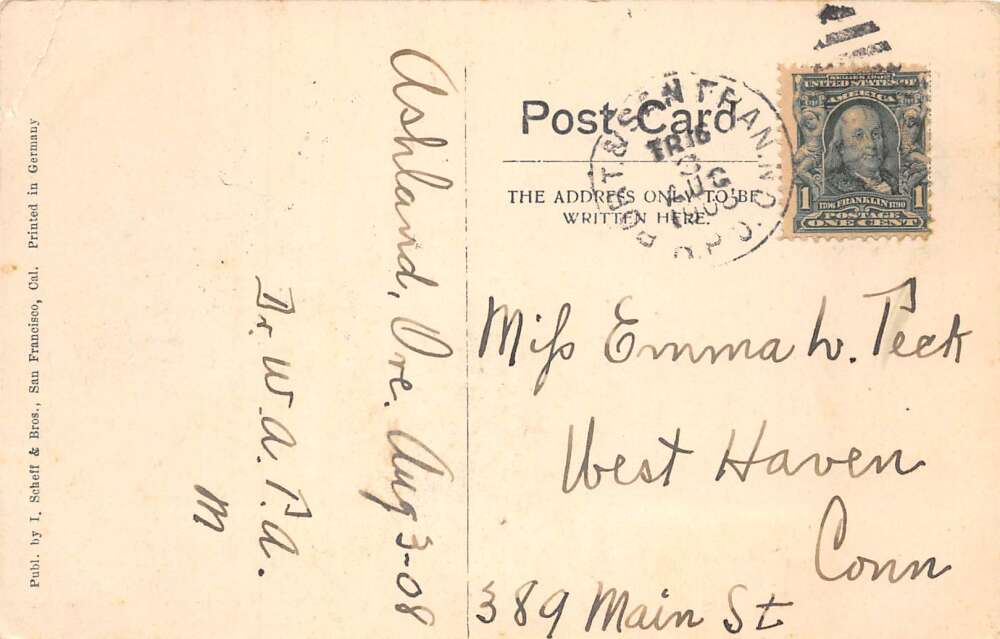 Publ. by I. Scheff & Bros., San Francisco, Cal. Printed in Germany
Ashland, Ore. Aug 3-08
Dr. W. A. P. A.
M
Post Card
THE ADDRESS ONLY TO BE
WRITTEN HERE.
PORT. & SAN FRAN.
TR 16
AUG
R.P.O.
SERIES 1902
UNITED STATES OF
AMERICA
1 1
1706 FRANKLIN 1790
POSTAGE
ONE CENT
Miss Emma W. Peck
West Haven
Conn
389 Main St